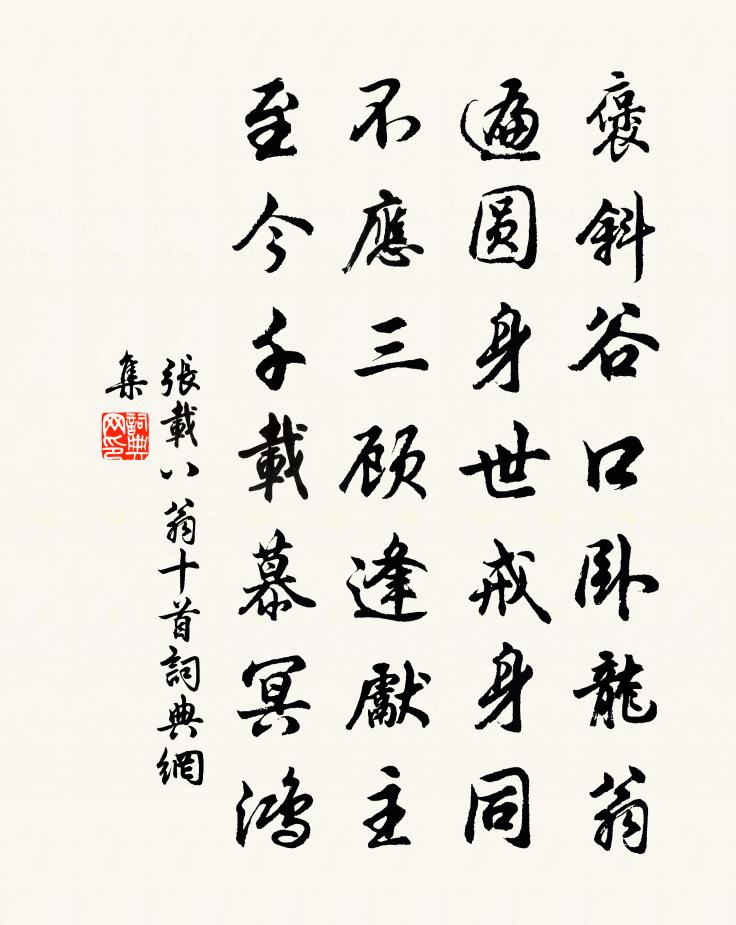 褒斜谷口卧龍翁
遍圓身世戒身同
不應三顾逢獻主
至今千載慕冥鸿
張載八翁十首詞典網
集
詞典网印